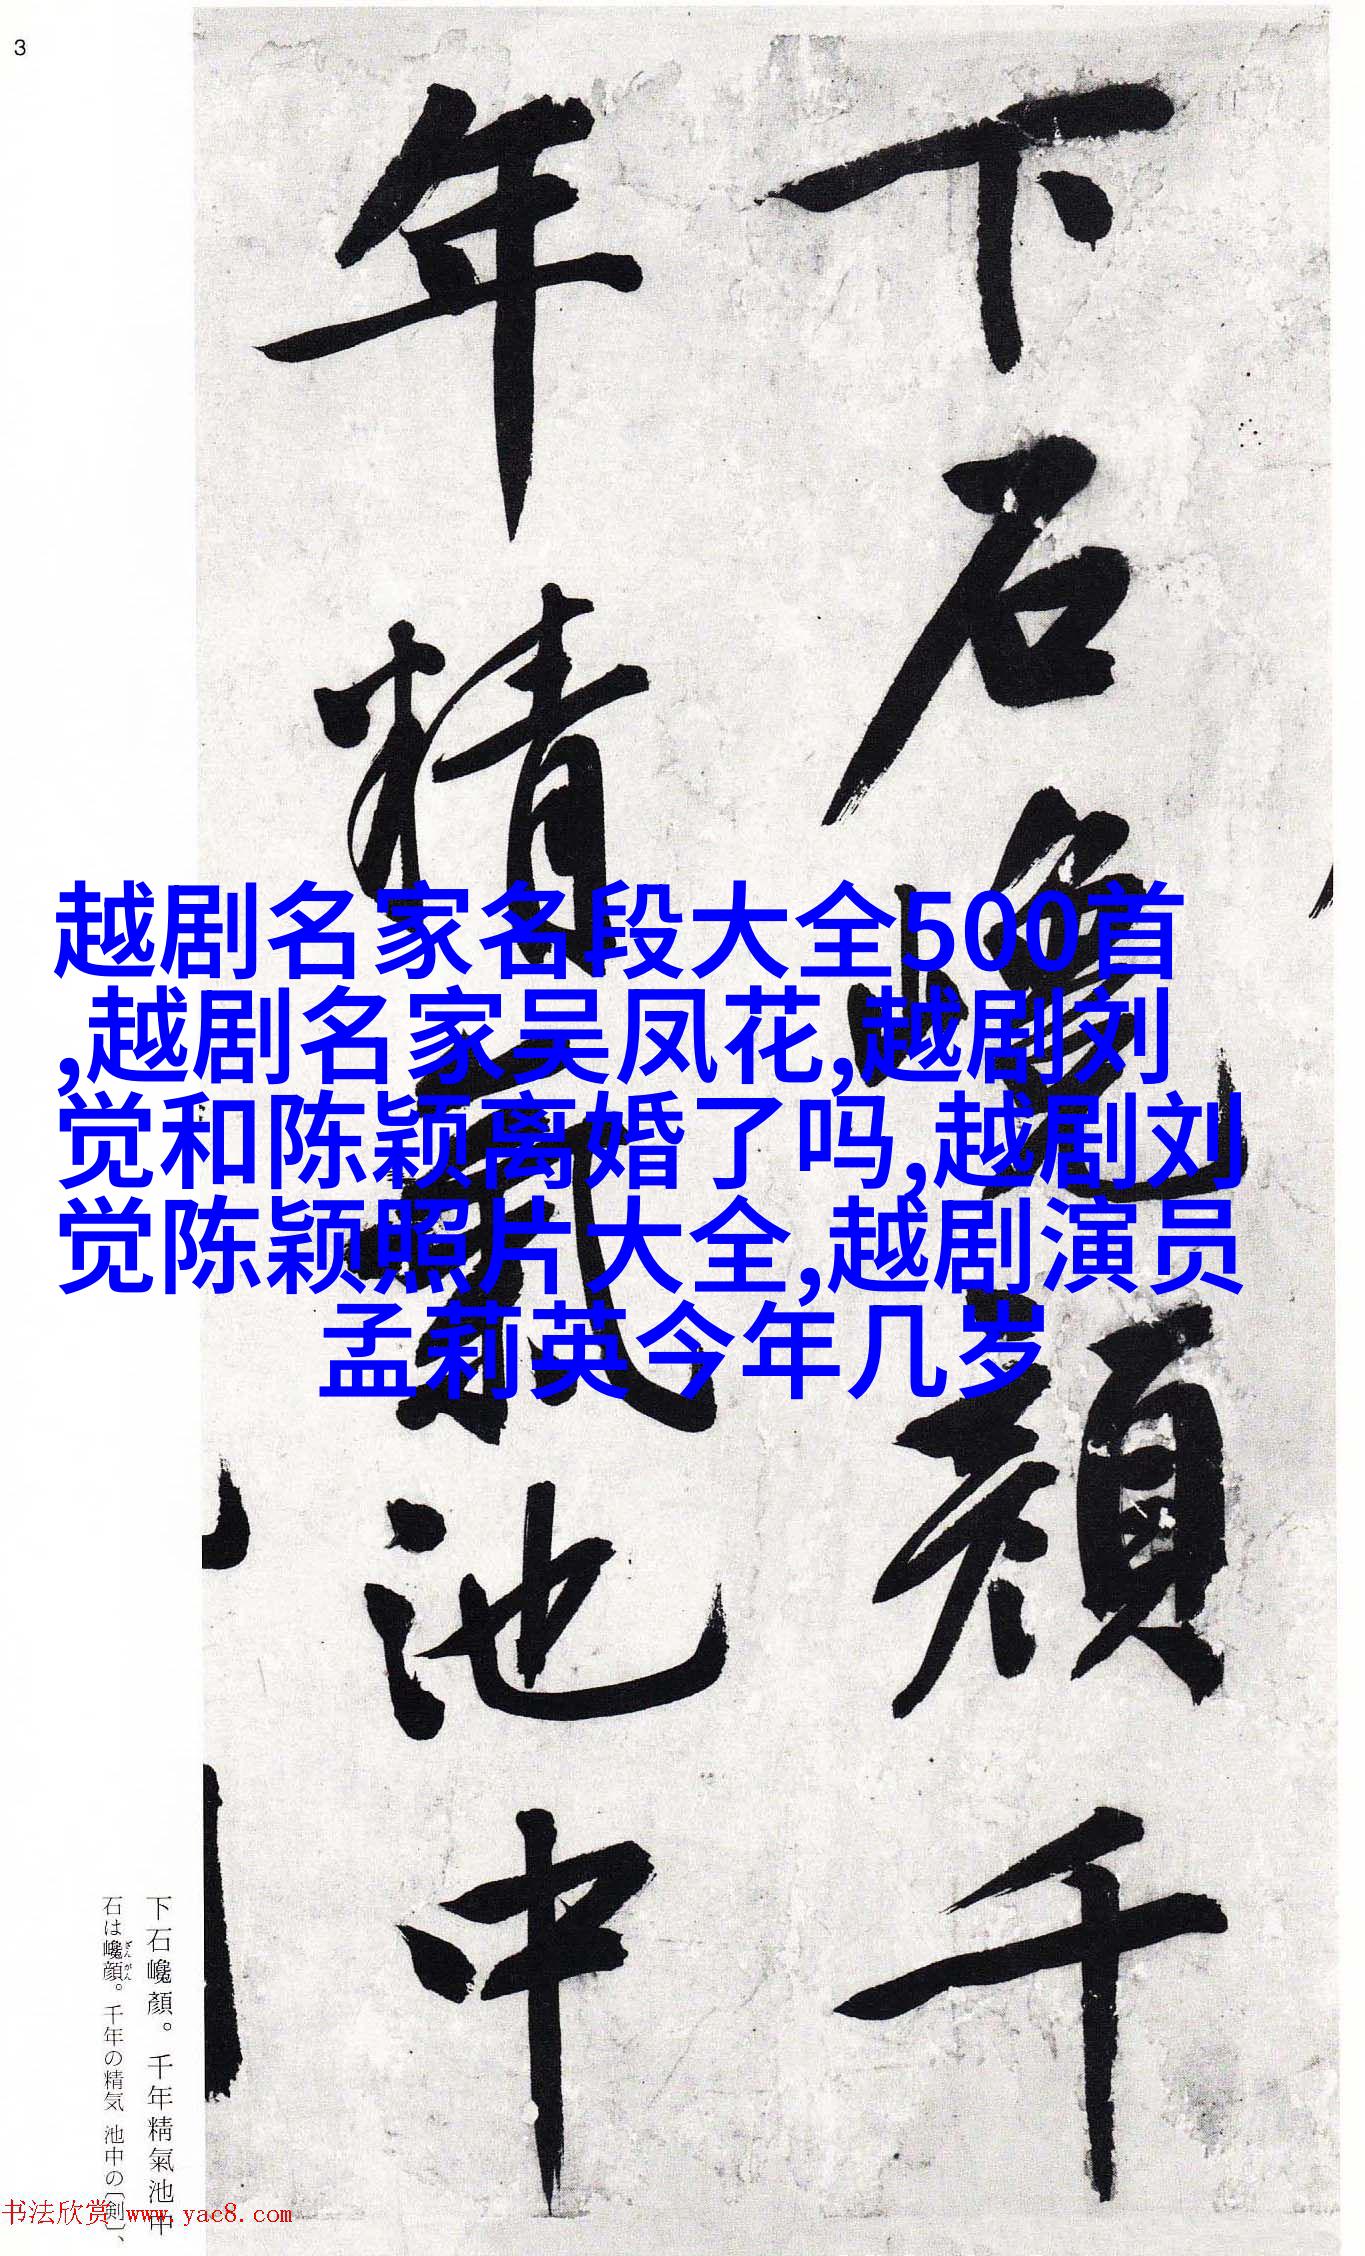 3
下石巉顏千
年精氣池中
越剧名家名段大全500首
,越剧名家吴凤花,越剧刘
觉和陈颖离婚了吗,越剧刘
觉陈颖照片大全,越剧演员
孟莉英今年几岁
下石巉顏。千年精氣池中
石は巉顔。千年の精気 池中の〔剣〕、
ざんがん
书法欣赏 www.yac8.com